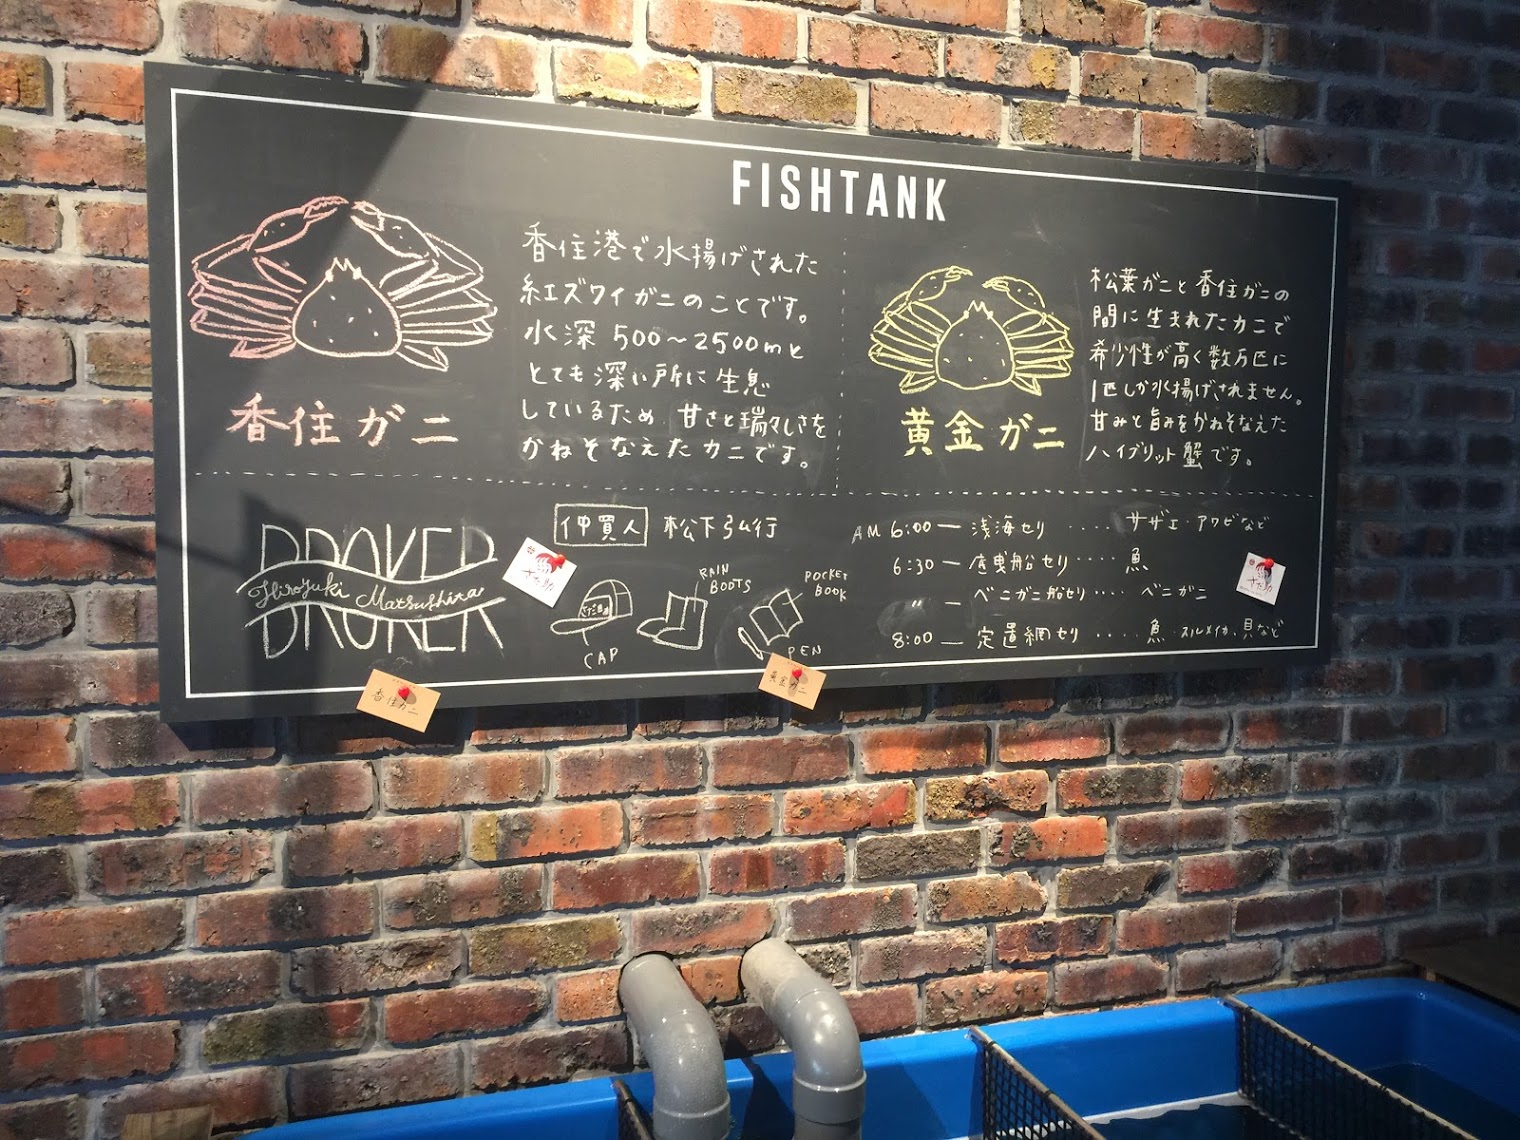 FISHTANK
香住ガニ
香住港で水揚げされた
紅ズワイガニのことです。
水深 500〜2500mと
とても深い所に生息
しているため 甘さと瑞々しさを
かねそなえたカニです。
黄金ガニ
松葉ガニと香住ガニの
間に生まれたカニで
希少性が高く数万匹に
1匹しか水揚げされません。
甘みと旨みをかねそなえた
ハイブリット蟹です。
BROKER
Hiroyuki Matsushita
BROKER
仲買人 松下弘行
CAP
RAIN
BOOTS
POCKET
BOOK
PEN
AM 6:00 — 浅海セリ ····· サザエ・アワビなど
6:30 — 底曳船セリ ···· 魚
〃 — ベニガニ船セリ ···· ベニガニ
8:00 — 定置網セリ ···· 魚・スルメイカ、貝など
香住ガニ
黄金ガニ